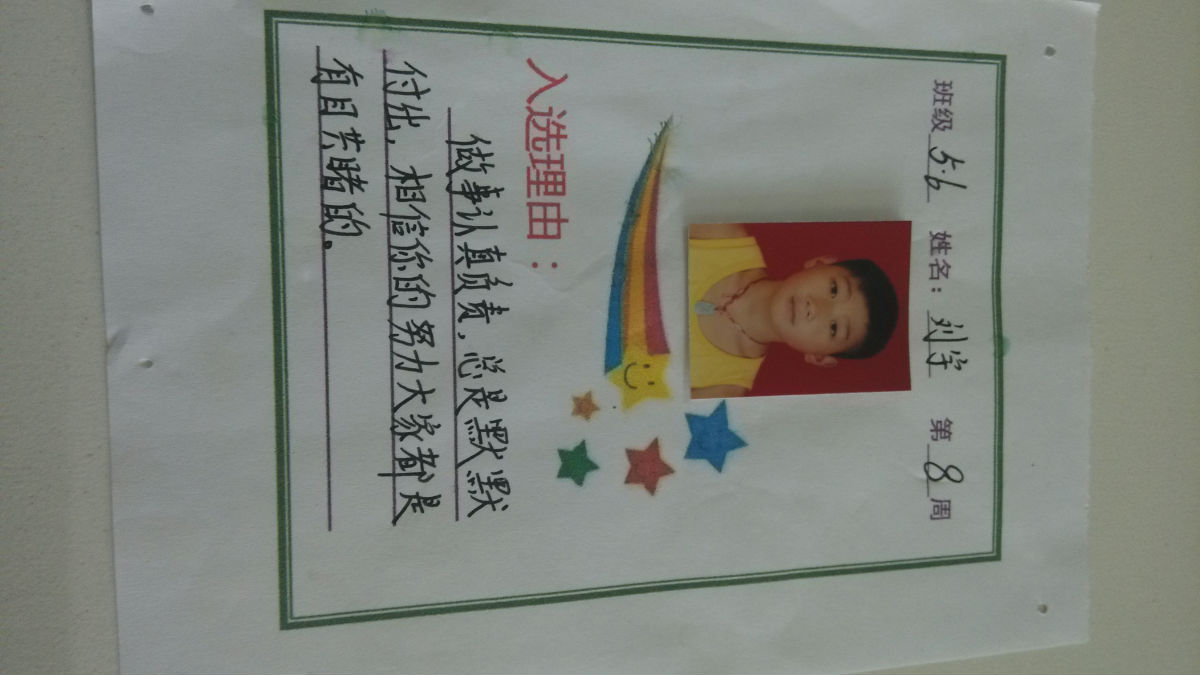 班级 5.6 姓名：刘宇 第 8 周
入选理由：
做事认真负责，总是默默
付出，相信你的努力大家都是
有目共睹的。